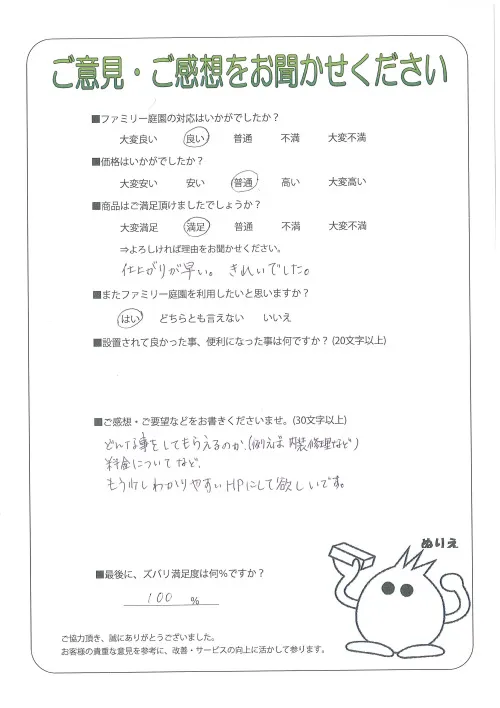 ご意見・ご感想をお聞かせください
■ファミリー庭園の対応はいかがでしたか？
大変良い 良い 普通 不満 大変不満
■価格はいかがでしたか？
大変安い 安い 普通 高い 大変高い
■商品はご満足頂けましたでしょうか？
大変満足 満足 普通 不満 大変不満
⇒よろしければ理由をお聞かせください。
仕上がりが早い。きれいでした。
■またファミリー庭園を利用したいと思いますか？
はい どちらとも言えない いいえ
■設置されて良かった事、便利になった事は何ですか？(20文字以上)
■ご感想・ご要望などをお書きくださいませ。(30文字以上)
どんな事をしてもらえるのか、(例えば 内装修理など)
料金について など、
もう少しわかりやすいHPにして欲しいです。
ぬりえ
■最後に、ズバリ満足度は何％ですか？
100 ％
ご協力頂き、誠にありがとうございました。
お客様の貴重な意見を参考に、改善・サービスの向上に活かして参ります。